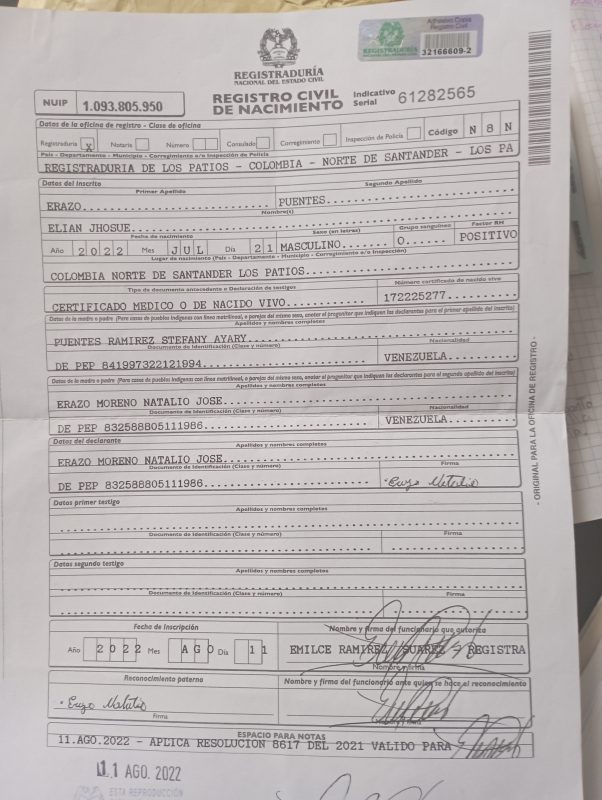 Adhesivo Copia
Registro Civil
REGISTRADURÍA
32166609-2
REGISTRADURÍA
NACIONAL DEL ESTADO CIVIL
NUIP 1.093.805.950
REGISTRO CIVIL
DE NACIMIENTO
Indicativo
Serial 61282565
Datos de la oficina de registro - Clase de oficina
Registraduría X Notaría Número Consulado Corregimiento Inspección de Policía Código N 8 N
País - Departamento - Municipio - Corregimiento e/o Inspección de Policía
REGISTRADURIA DE LOS PATIOS - COLOMBIA - NORTE DE SANTANDER - LOS PA
Datos del inscrito
Primer Apellido Segundo Apellido
ERAZO PUENTES
Nombre(s)
ELIAN JHOSUE
Fecha de nacimiento Sexo (en letras) Grupo sanguíneo Factor RH
Año 2022 Mes JUL Día 21 MASCULINO O POSITIVO
Lugar de nacimiento (País - Departamento - Municipio - Corregimiento e/o Inspección)
COLOMBIA NORTE DE SANTANDER LOS PATIOS
Tipo de documento antecedente o Declaración de testigos Número certificado de nacido vivo
CERTIFICADO MEDICO O DE NACIDO VIVO 172225277
Datos de la madre o padre (Para casos de pueblos indígenas con línea matrilineal, o parejas del mismo sexo, anotar el progenitor que indiquen los declarantes para el primer apellido del inscrito)
Apellidos y nombres completos
PUENTES RAMIREZ STEFANY AYARY
Documento de Identificación (Clase y número) Nacionalidad
DE PEP 841997322121994 VENEZUELA
Datos de la madre o padre (Para casos de pueblos indígenas con línea matrilineal, o parejas del mismo sexo, anotar el progenitor que indiquen los declarantes para el segundo apellido del inscrito)
Apellidos y nombres completos
ERAZO MORENO NATALIO JOSE
Documento de Identificación (Clase y número) Nacionalidad
DE PEP 832588805111986 VENEZUELA
Datos del declarante
Apellidos y nombres completos
ERAZO MORENO NATALIO JOSE
Documento de Identificación (Clase y número) Firma
DE PEP 832588805111986
Datos primer testigo
Apellidos y nombres completos
Documento de Identificación (Clase y número) Firma
Datos segundo testigo
Apellidos y nombres completos
Documento de Identificación (Clase y número) Firma
Fecha de inscripción Nombre y firma del funcionario que autoriza
Año 2022 Mes AGO Día 11 EMILCE RAMIREZ SUAREZ - REGISTRA
Nombre y firma
Reconocimiento paterno Nombre y firma del funcionario ante quien se hace el reconocimiento
Firma Nombre y firma
ESPACIO PARA NOTAS
11.AGO.2022 - APLICA RESOLUCION 8617 DEL 2021 VALIDO PARA
11 AGO. 2022
ESTA REPRODUCCIÓN
- ORIGINAL PARA LA OFICINA DE REGISTRO -